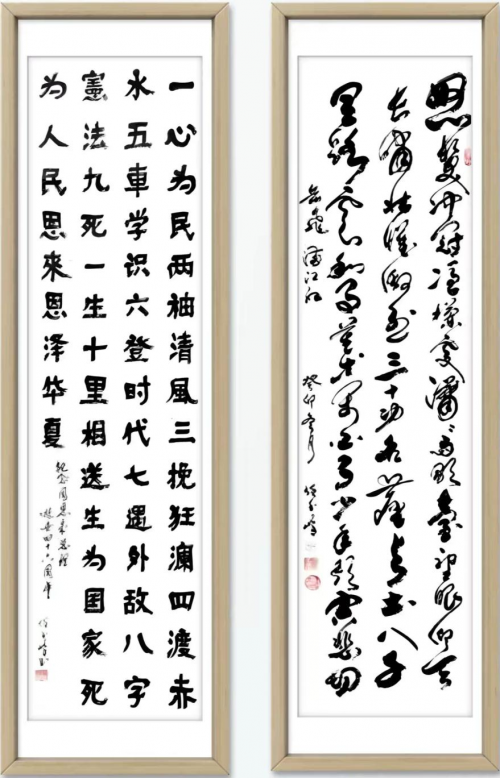 一心为民两袖清風三挽狂澜四渡赤
水五車学识六登时代七遇外敌八字
憲法九死一生十里相送生为国家死
为人民恩来恩泽华夏
纪念周恩来总理
逝世四十六周年
怒髮冲冠凭栏处潇潇雨歇抬望眼仰天
长啸壮怀激烈三十功名尘与土八千
里路云和月莫等闲白了少年头空悲切
岳飞 满江红 癸卯